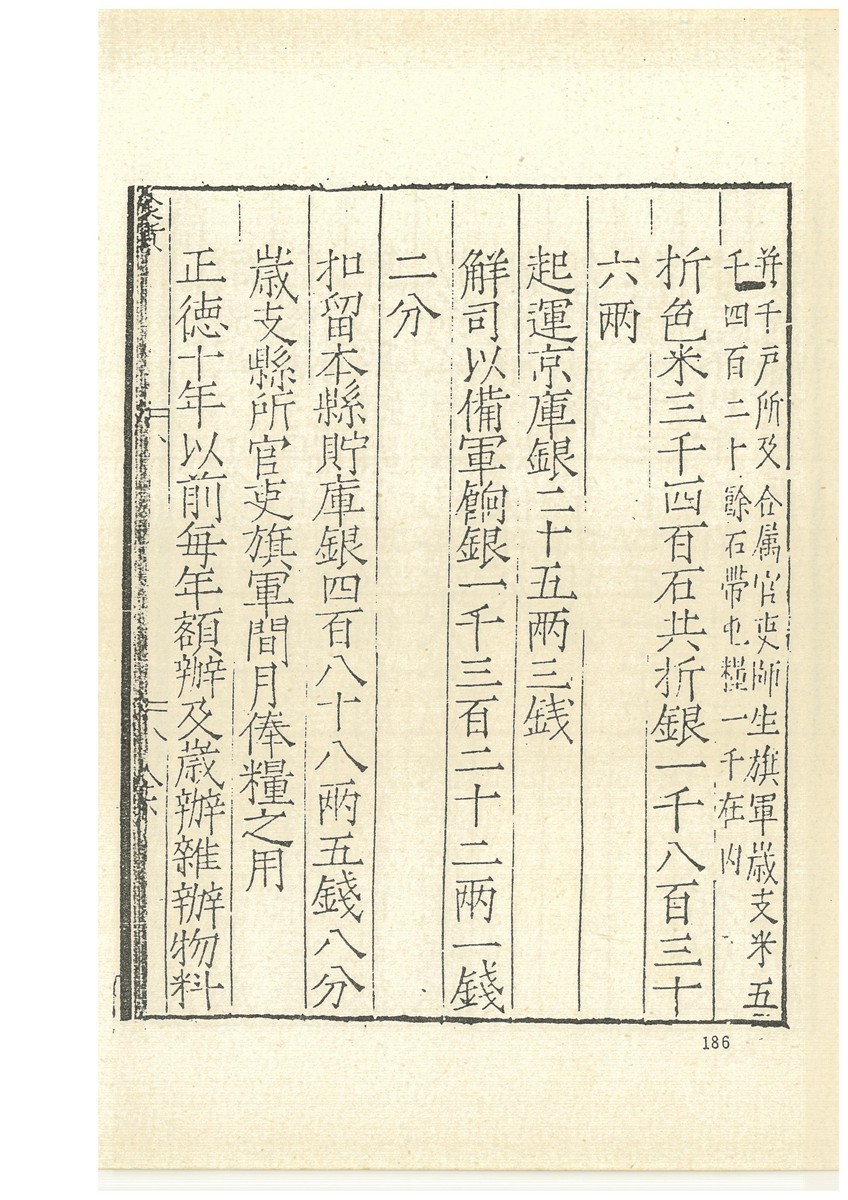 并千戶所及合属官吏師生旗軍歲支米五
千四百二十餘石帶屯糧一千在内
折色米三千四百石共折銀一千八百三十
六两
起運京庫銀二十五两三錢
解司以備軍餉銀一千三百二十二两一錢
二分
扣留本縣貯庫銀四百八十八两五錢八分
歲支縣所官吏旗軍閏月俸糧之用
正德十年以前每年額辦及歲辦雜辦物料
食貨
186